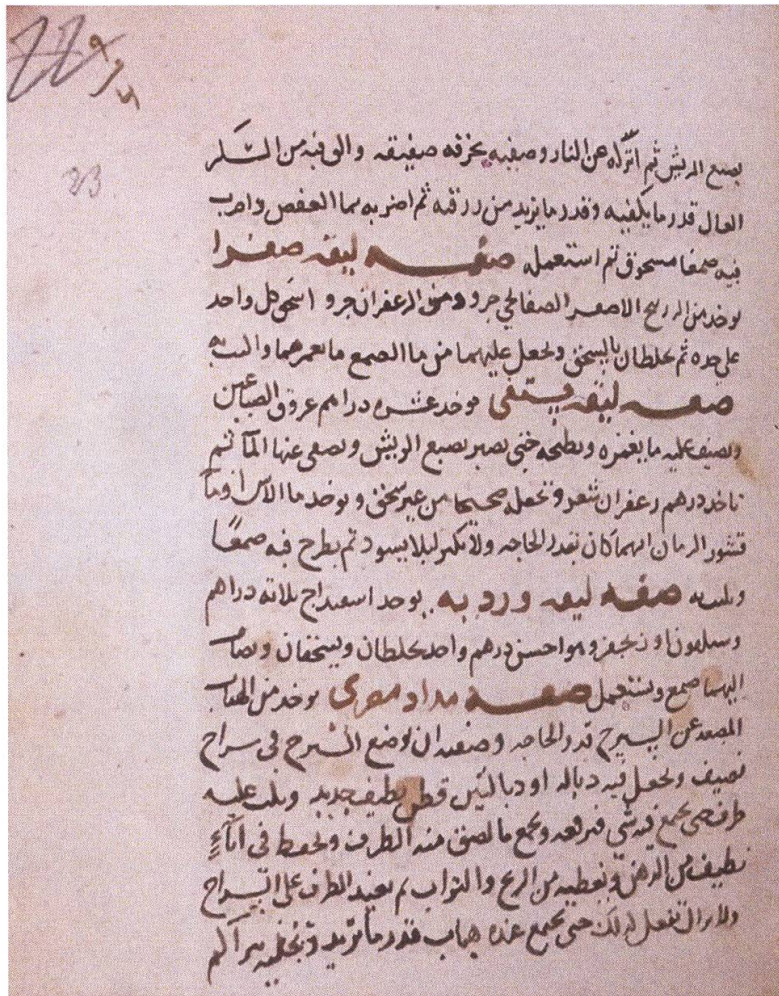 23
يصبغ الريش ثم انزله عن النار وصفيه بخرقه صفيقه والق فيه من السكر
العال قدر ما يكفيه وقدر ما يزيد من ثم اضربه بما العفص واضرب
فيه صمغا مسحوق ثم استعمله صفه ليقه صفرا
يوخذ من الزرنيخ الاصفر الصفايحي جزو ومن الزعفران جزو اسحق كل واحد
على حده ثم يخلطان بالسحق ويجعل عليهما من ما الصمغ ما يغمرهما
صفه ليقه فستقى يوخذ عشره دراهم عروق الصباغين
ويضيف عليه ما يغمره ويطبخه حتى يصير يصبغ الريش ويصفى عنها الما ثم
تاخذ درهم زعفران شعر وتجعله صحيحا من غير سحق ويوخذ ما الاس او ما
قشور الرمان ايهما كان بقدر الحاجه ولا يكثر ليلا يسود ثم يطرح فيه صمغا
صفه ليقه ورديه يوخذ اسفيداج ثلاثه دراهم
وسيلقون او زنجفر وهو احسن درهم واحد يخلطان ويسحقان ويضاف
اليهما صمغ ويستعمل صفه مداد يوخذ من الهباب
المصعد عن السيرج قدر الحاجه وصفته ان يوضع السيرج فى سراج
نضيف ويجعل فيه دباله او دبالتين قطن نظيف جديد عليه
ظرف حتى يجمع فيه شي فترفعه ويجمع ما لصق منه الظرف ويحفظ فى انآء
نظيف من الدهن ويغطيه من الريح والتراب ثم يعيد الظرف على السراج
ولا يزال تفعل ذلك حتى يجمع عنده هباب قدر ما تريد